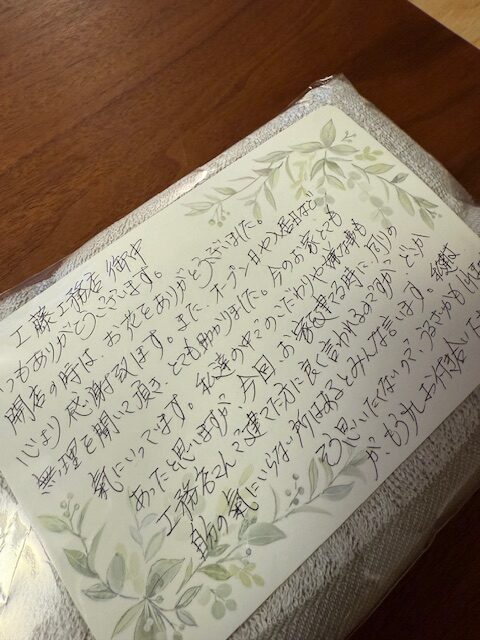 工藤工務店 御中
いつもありがとうございます。
開店の時は、お花をありがとうございました。
じより 感謝致します。また、オープン日や入居日など
無理を聞いて頂き、とても助かりました。今のお家とても
気にいってます。私達の中でのこだわりや嫌な事も
あったと思いますが、今回、お家を建てる時に、周りの
工務店さんで建てた方に良く言われるのですが、どか
自分の気にいらない所はあるとみんな言います。私達は
そう思いたくないので、うるさかも
が、もう少しお付合い